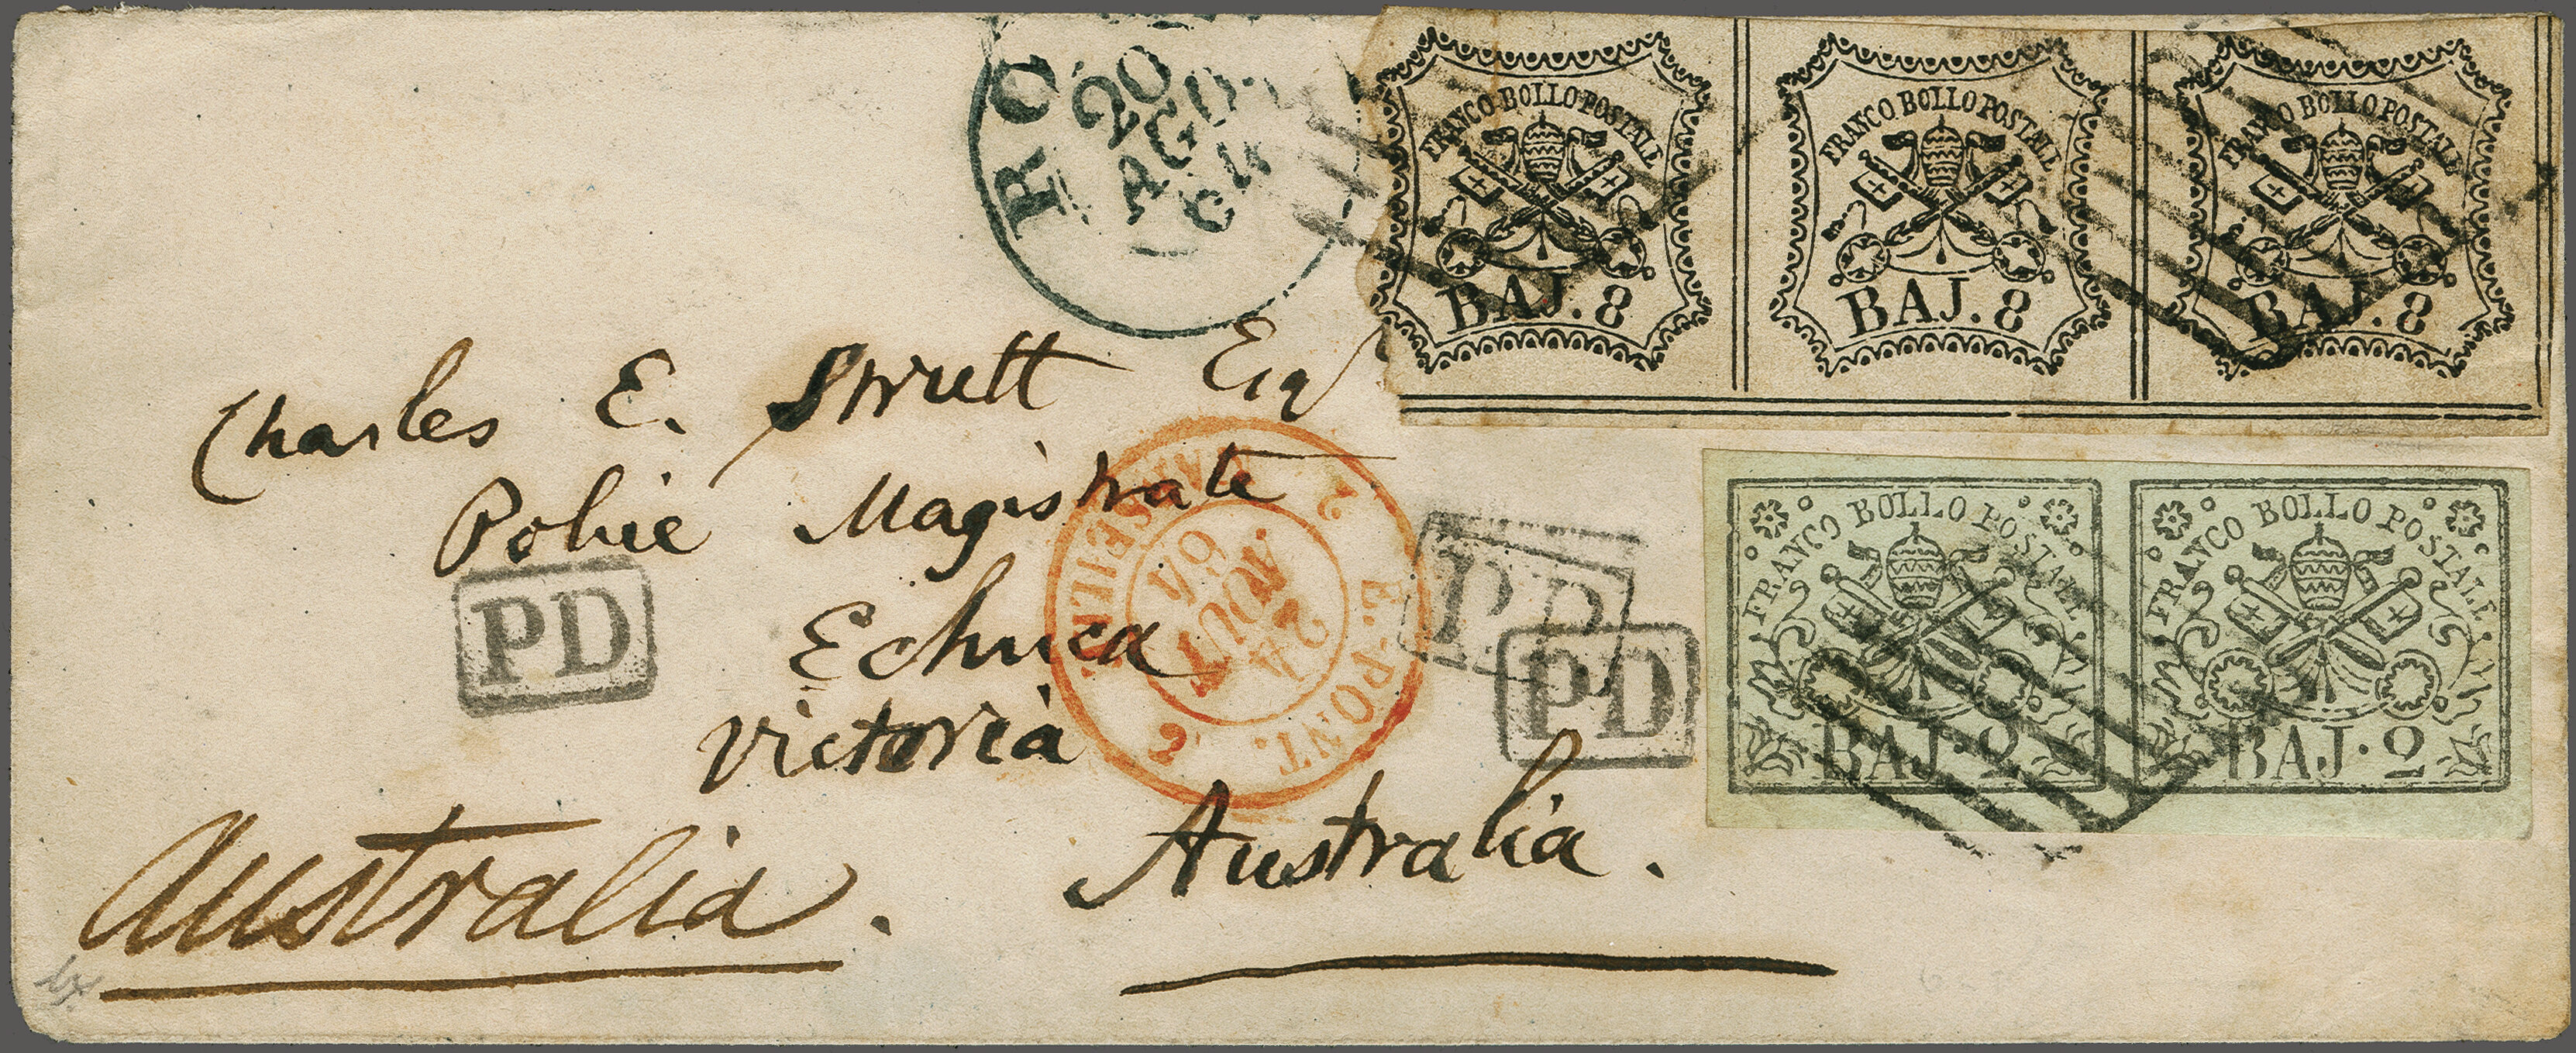 RO
20
AGO.
64
FRANCO BOLLO POSTALE
BAJ. 8
FRANCO BOLLO POSTALE
BAJ. 8
FRANCO BOLLO POSTALE
BAJ. 8
Charles E. Strutt Esq
Police Magistrate
Echuca
Victoria
Australia.
Australia.
E. PONT.
2
MARSEILLE
2
24
AOUT
64
PD
P.D.
PD
FRANCO BOLLO POSTALE
BAJ. 2
FRANCO BOLLO POSTALE
BAJ. 2